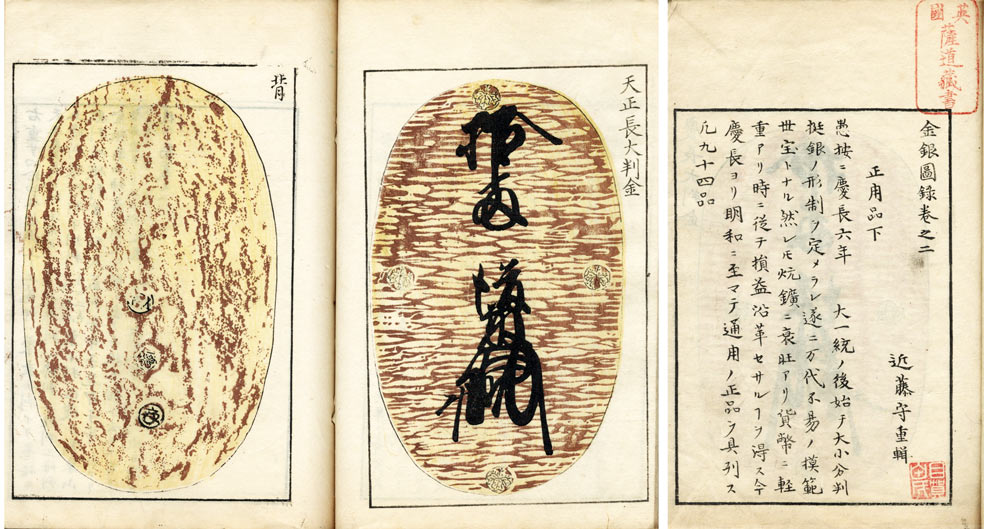 英國
薩道藏書
金銀圖録卷之二
近藤守重輯
正用品下
愚按ニ慶長六年　大一統ノ後始テ大小分判
挺銀ノ形制ヲ定メラレ遂ニ万代不易ノ摸範
世宝トナル然レㇳモ炕鑛ニ衰旺アリ貨幣ニ軽
重アリ時ニ從テ損益沿革セサルヿヲ得ス今
慶長ヨリ明和ニ至マテ通用ノ正品ヲ具列ス
凡九十四品
天正長大判金
拾両
後藤
背